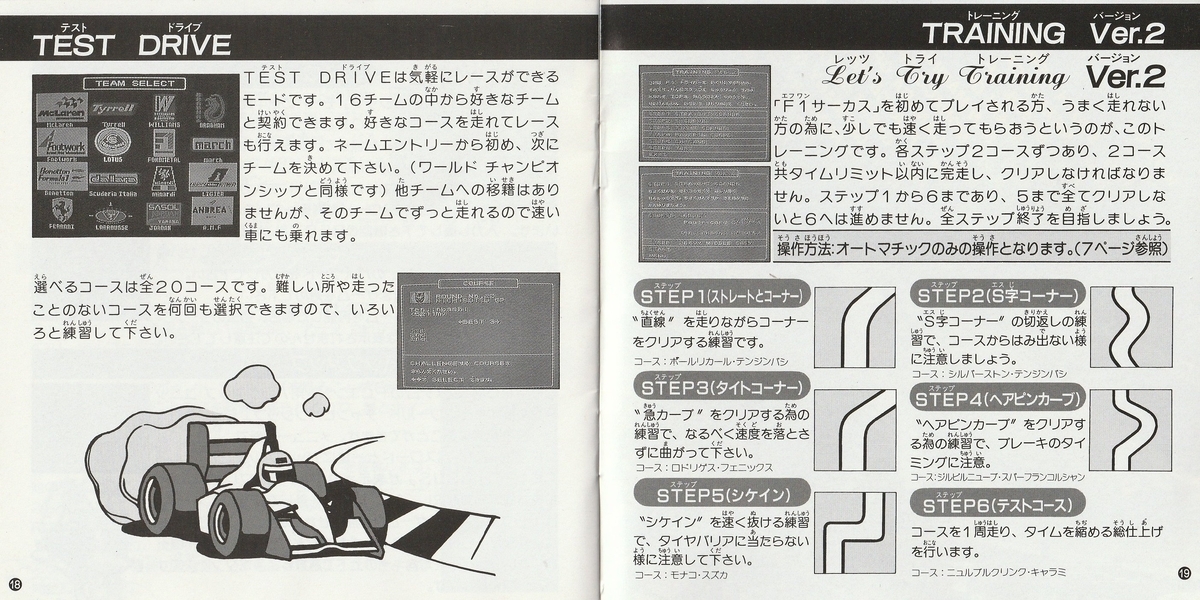 TEST DRIVE
テスト ドライブ
TEAM SELECT
McLaren Tyrrell WILLIAMS BRABHAM
Footwork LOTUS FONDMETAL March
Benetton Scuderia Italia Minardi LIGIER
FERARRI LARROUSSE JORDAN A.M.F
TEST DRIVEは気軽にレースができる
モードです。16チームの中から好きなチーム
と契約できます。好きなコースを走れてレース
も行えます。ネームエントリーから初め、次に
チームを決めて下さい。(ワールド チャンピオ
ンシップと同様です)他チームへの移籍はあり
ませんが、そのチームでずっと走れるので速い
車にも乗れます。
選べるコースは全20コースです。難しい所や走った
ことのないコースを何回も選択できますので、いろい
ろと練習して下さい。
COURSE
18
トレーニング バージョン
TRAINING Ver.2
レッツ トライ トレーニング バージョン
Let's Try Training Ver.2
「F1サーカス」を初めてプレイされる方、うまく走れない
方の為に、少しでも速く走ってもらおうというのが、このト
レーニングです。各ステップ2コースずつあり、2コース
共タイムリミット以内に完走し、クリアしなければなりま
せん。ステップ1から6まであり、5まで全てクリアしな
いと6へは進めません。全ステップ終了を目指しましょう。
操作方法:オートマチックのみの操作となります。(7ページ参照)
ステップ
STEP1(ストレートとコーナー)
"直線"を走りながらコーナー
をクリアする練習です。
コース:ポールリカール・テンジンバシ
ステップ
STEP2(S字コーナー)
"S字コーナー"の切返しの練
習で、コースからはみ出ない様
に注意しましょう。
コース:シルバーストン・テンジンバシ
ステップ
STEP3(タイトコーナー)
"急カーブ"をクリアする為の
練習で、なるべく速度を落とさ
ずに曲がって下さい。
コース:ロドリゲス・フェニックス
ステップ
STEP4(ヘアピンカーブ)
"ヘアピンカーブ"をクリアす
る為の練習で、ブレーキのタイ
ミングに注意。
コース:ジルビルニューブ・スパーフランコルシャン
ステップ
STEP5(シケイン)
"シケイン"を速く抜ける練習
で、タイヤバリアに当たらない
様に注意して下さい。
コース:モナコ・スズカ
ステップ
STEP6(テストコース)
コースを1周走り、タイムを縮める総仕上げ
を行います。
コース:ニュルブルクリンク・キャラミ
19